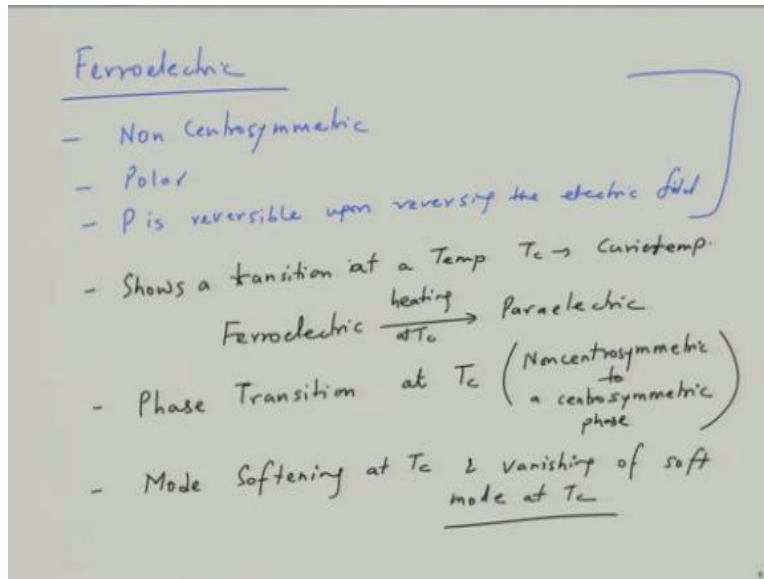 Ferroelectric
- Non Centrosymmetric
- Polar
- P is reversible upon reversing the electric field
- Shows a transition at a Temp Tc → Curietemp.
Ferroelectric heating at Tc → Paraelectric
- Phase Transition at Tc (Noncentrosymmetric
to
a centrosymmetric
phase)
- Mode Softening at Tc & vanishing of soft
mode at Tc